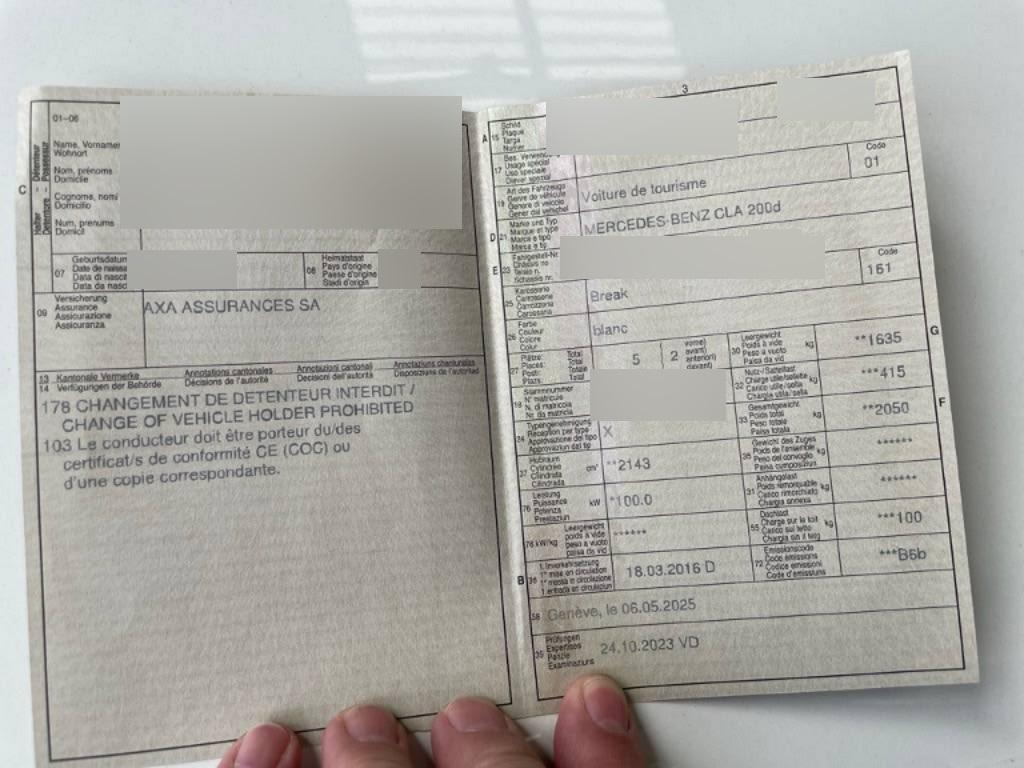 01–06
Name, Vornamen
Wohnort
Nom, prénoms
Domicile
Cognome, nomi
Domicilio
Num, prenums
Domicil
C
Halter Détenteur
Detentore Possessur
07
Geburtsdatum
Data di nascita
08
Heimatstaat
Pays d'origine
Paese d'origine
Stadi d'origin
09
Versicherung
Assurance
Assicurazione
Assicuranza
AXA ASSURANCES SA
13 Kantonale Vermerke
14 Verfügungen der Behörde
Annotations cantonales
Décisions de l'autorité
Annotazioni cantonali
Decisioni dell'autorità
Annotaziuns chantunalas
Disposiziuns da l'autoritad
178 CHANGEMENT DE DETENTEUR INTERDIT /
CHANGE OF VEHICLE HOLDER PROHIBITED
103 Le conducteur doit être porteur du/des
certificat/s de conformité CE (COC) ou
d'une copie correspondante.
3
A
15
Schild
Plaque
Targa
Numer
17
Usage spécial
Uso speciale
Diever spezial
Code
01
19
Art des Fahrzeugs
Genre de véhicule
Genere di veicolo
Gener dal vehichel
Voiture de tourisme
D
21
Marke und Typ
Marque et type
Marca e tipo
Marca e tip
MERCEDES-BENZ CLA 200d
E
23
Fahrgestell-Nr.
Châssis no
Telaio n.
Schassis nr.
25
Karosserie
Carrosserie
Carrozzeria
Carossaria
Break
Code
161
26
Farbe
Couleur
Colore
Colur
blanc
27
Plätze: Total
Places: Total
Posti: Totale
Plazs: Total
5
2
vorne)
avant)
anteriori)
davant)
30
Leergewicht
Poids à vide
Peso a vuoto
Paisa da vid
kg
**1635
G
18
Stammnummer
N° matricule
N. di matricola
Nr. da matricla
32
Nutz-/Sattellast
Charge utile/sellette
Carico utile/sella
Chargia utila/sella
kg
***415
24
Typengenehmigung
Réception par type
Approvazione del tipo
Approvaziun dal tip
X
33
Gesamtgewicht
Poids total
Peso totale
Paisa totala
kg
**2050
F
37
Hubraum
Cylindrée
Cilindrata
Cilindrada
cm³
**2143
35
Gewicht des Zuges
Poids de l'ensemble
Peso del convoglio
Paisa cumposiziun
kg
******
76
Leistung
Puissance
Potenza
Prestaziun
kW
*100.0
31
Anhängelast
Poids remorquable
Carico rimorchiato
Chargia annexa
kg
******
78 kW/kg
Leergewicht
poids à vide
peso a vuoto
paisa da vid
******
55
Dachlast
Charge sur le toit
Carico sul tetto
Chargia sin il tetg
kg
***100
B
36
1. Inverkehrsetzung
1re mise en circulation
1a messa in circolazione
1 entrada en circulaziun
18.03.2016 D
72
Emissionscode
Code émissions
Codice emissioni
Code d'emissiuns
***B6b
38
Genève, le 06.05.2025
39
Prüfungen
Expertises
Perizie
Examinaziuns
24.10.2023 VD